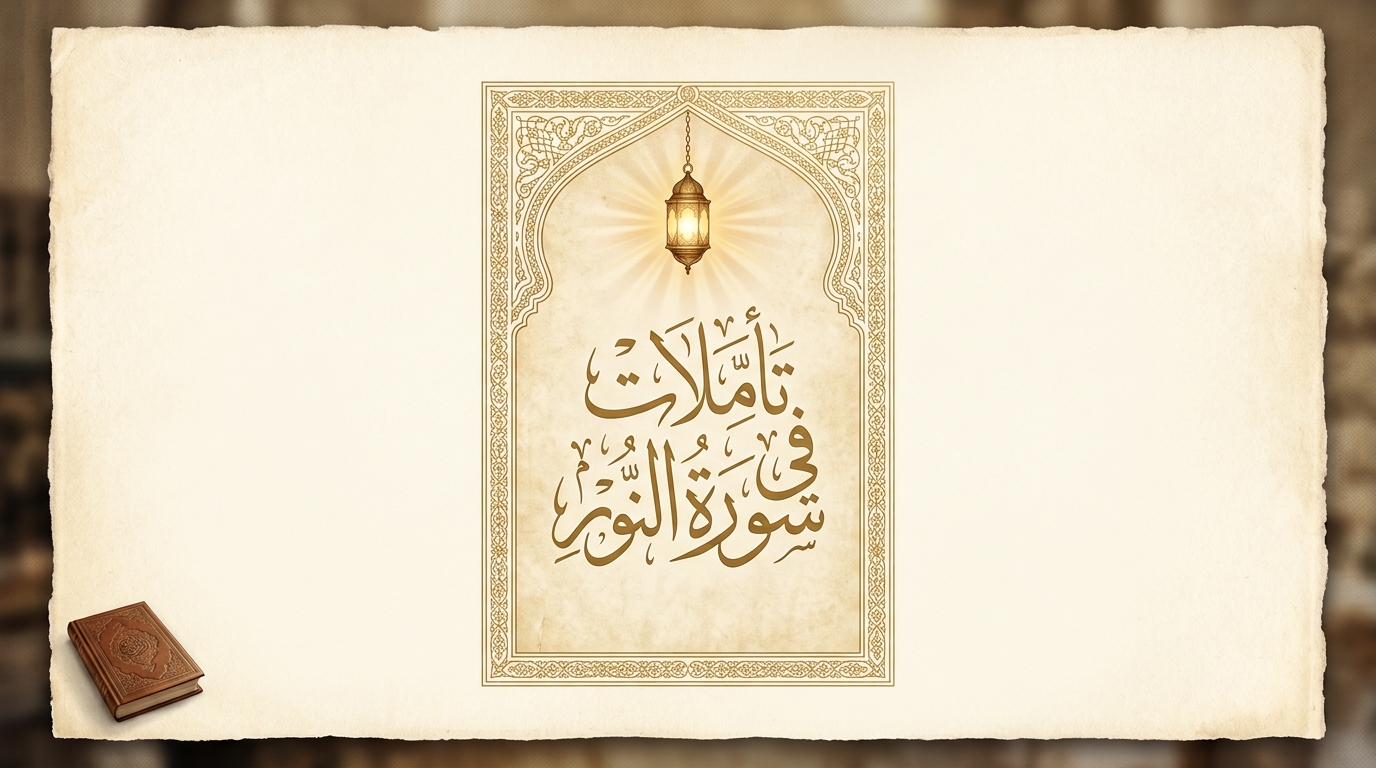 تَأَمُّلَات
فِي
سُورَةُ النُّورِ